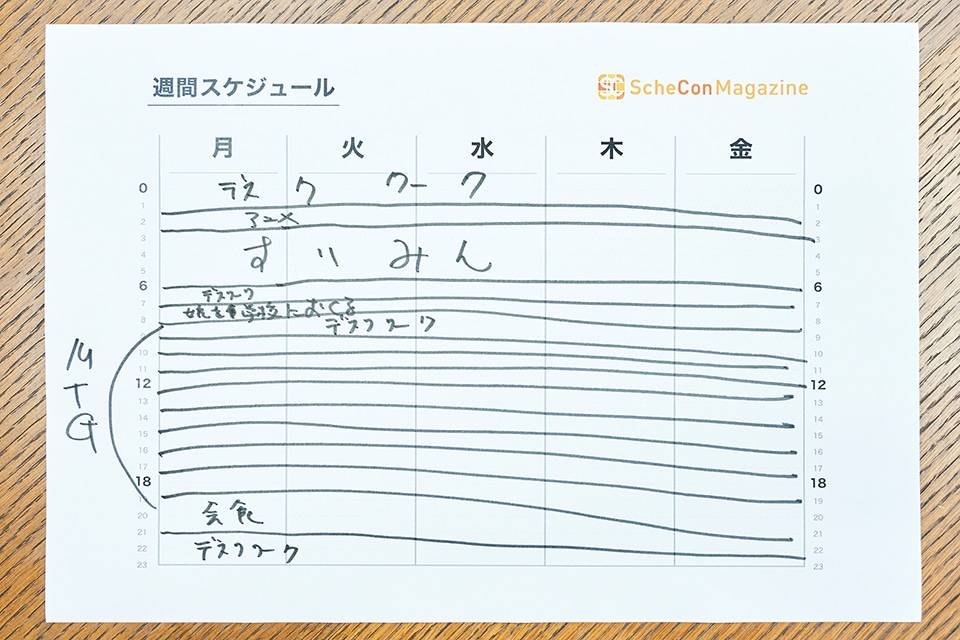 週間スケジュール
ScheConMagazine
月 火 水 木 金
0 デスクワーク 0
1 1
2 アニメ 2
3 3
4 すいみん 4
5 5
6 デスクワーク 6
7 娘を車学校におくる 7
8 デスクワーク 8
9 9
10 10
11 11
12 12
13 13
14 14
15 15
16 16
17 17
18 18
19 19
20 会食 20
21 21
22 デスクワーク 22
23 23
MTG